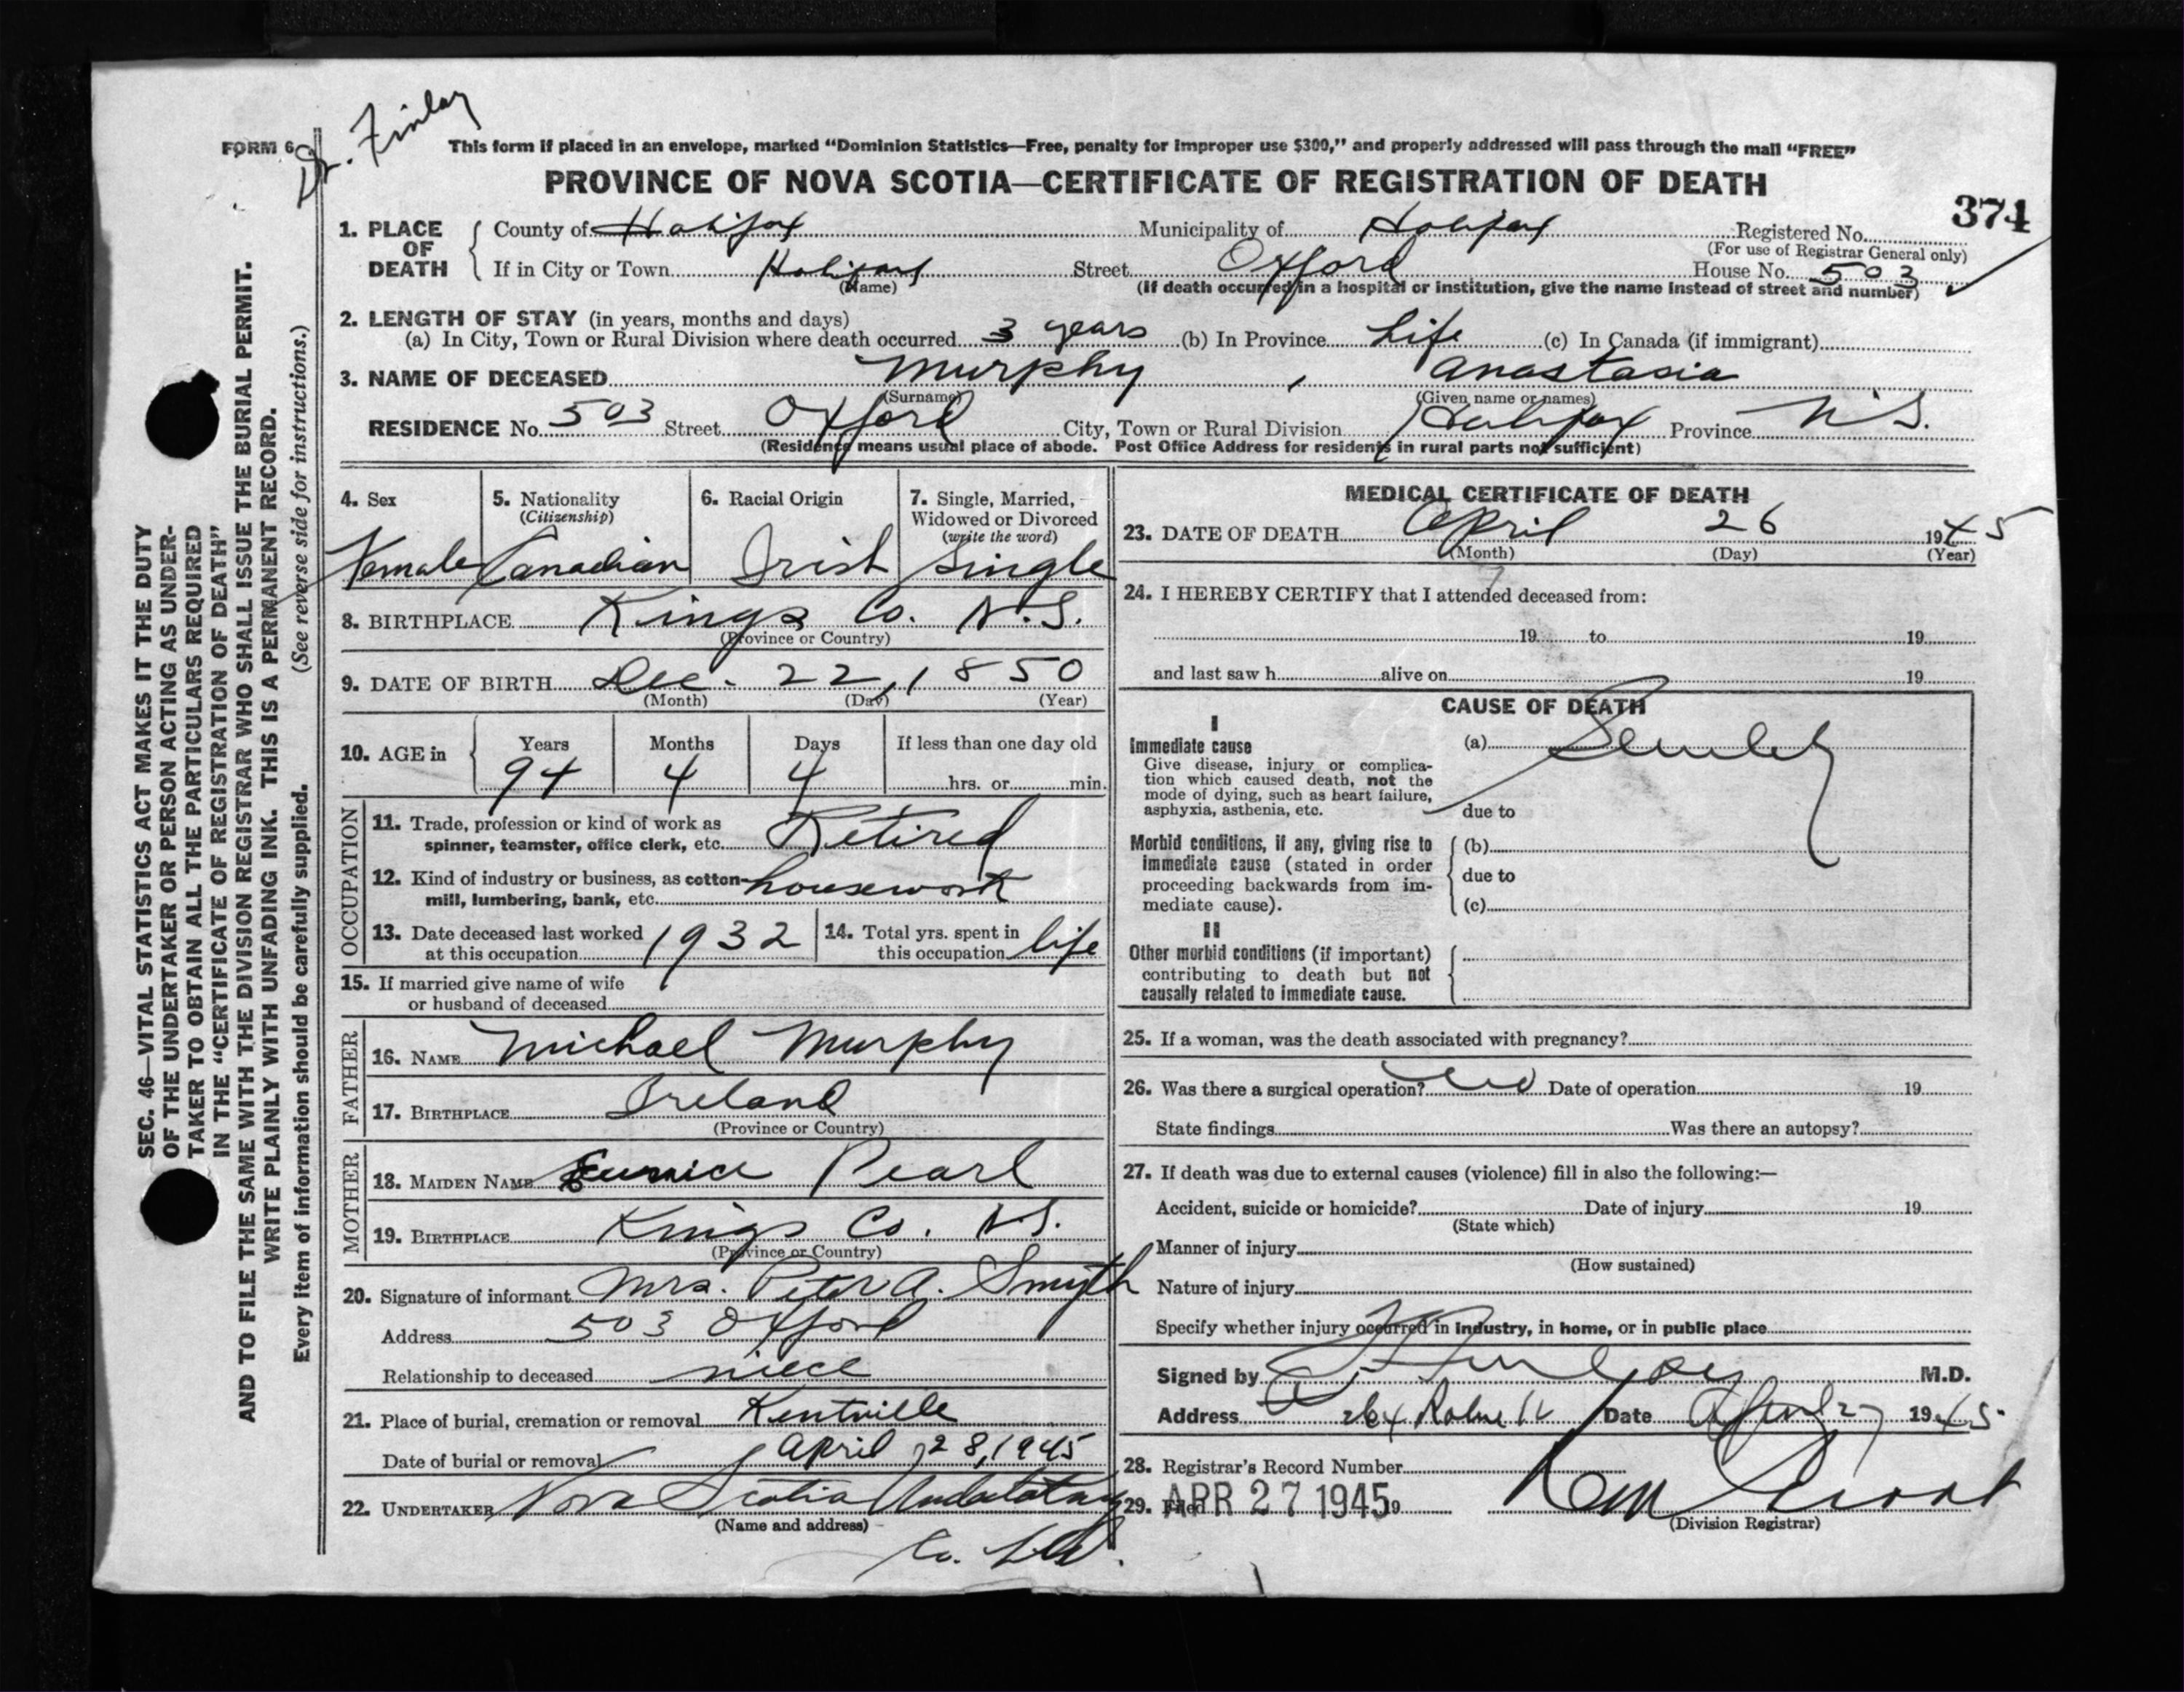 FORM 6
Dr. Finlay
This form if placed in an envelope, marked “Dominion Statistics—Free, penalty for improper use $300,” and properly addressed will pass through the mail “FREE”
PROVINCE OF NOVA SCOTIA—CERTIFICATE OF REGISTRATION OF DEATH
374
1. PLACE OF DEATH
County of Halifax Municipality of Halifax Registered No.
(For use of Registrar General only)
If in City or Town Halifax Street Oxford House No. 503
(Name) (If death occurred in a hospital or institution, give the name instead of street and number)
2. LENGTH OF STAY (in years, months and days)
(a) In City, Town or Rural Division where death occurred 3 years (b) In Province Life (c) In Canada (if immigrant)
3. NAME OF DECEASED Murphy , Anastasia
(Surname) (Given name or names)
RESIDENCE No. 503 Street Oxford City, Town or Rural Division Halifax Province N.S.
(Residence means usual place of abode. Post Office Address for residents in rural parts not sufficient)
4. Sex
Female
5. Nationality
(Citizenship)
Canadian
6. Racial Origin
Irish
7. Single, Married,
Widowed or Divorced
(write the word)
Single
8. BIRTHPLACE Kings Co. N.S.
(Province or Country)
9. DATE OF BIRTH Dec. 22, 1850
(Month) (Day) (Year)
10. AGE in
Years Months Days If less than one day old
94 4 4 hrs. or min.
OCCUPATION
11. Trade, profession or kind of work as
spinner, teamster, office clerk, etc. Retired
12. Kind of industry or business, as cotton-
mill, lumbering, bank, etc. housework
13. Date deceased last worked
at this occupation 1932
14. Total yrs. spent in
this occupation life
15. If married give name of wife
or husband of deceased
FATHER
16. NAME Michael Murphy
17. BIRTHPLACE Ireland
(Province or Country)
MOTHER
18. MAIDEN NAME Eunice Pearl
19. BIRTHPLACE Kings Co. N.S.
(Province or Country)
20. Signature of informant Mrs. Peter A. Smyth
Address 503 Oxford
Relationship to deceased niece
21. Place of burial, cremation or removal Kentville
Date of burial or removal April 28, 1945
22. UNDERTAKER Nova Scotia Undertaking
(Name and address)
Co. Ltd.
MEDICAL CERTIFICATE OF DEATH
23. DATE OF DEATH April 26 1945
(Month) (Day) (Year)
24. I HEREBY CERTIFY that I attended deceased from:
19 to 19
and last saw h alive on 19
CAUSE OF DEATH
I
Immediate cause
Give disease, injury or complica-
tion which caused death, not the
mode of dying, such as heart failure,
asphyxia, asthenia, etc.
(a) Senility
due to
Morbid conditions, if any, giving rise to
immediate cause (stated in order
proceeding backwards from im-
mediate cause).
(b)
due to
(c)
II
Other morbid conditions (if important)
contributing to death but not
causally related to immediate cause.
25. If a woman, was the death associated with pregnancy?
26. Was there a surgical operation? no Date of operation 19
State findings Was there an autopsy?
27. If death was due to external causes (violence) fill in also the following:—
Accident, suicide or homicide? Date of injury 19
(State which)
Manner of injury
(How sustained)
Nature of injury
Specify whether injury occurred in industry, in home, or in public place
Signed by Finlay M.D.
Address 264 Date April 27 1945
28. Registrar's Record Number
29. Filed APR 27 1945 19
(Division Registrar)
SEC. 46—VITAL STATISTICS ACT MAKES IT THE DUTY
OF THE UNDERTAKER OR PERSON ACTING AS UNDER-
TAKER TO OBTAIN ALL THE PARTICULARS REQUIRED
IN THE “CERTIFICATE OF REGISTRATION OF DEATH”
AND TO FILE THE SAME WITH THE DIVISION REGISTRAR WHO SHALL ISSUE THE BURIAL PERMIT.
WRITE PLAINLY WITH UNFADING INK. THIS IS A PERMANENT RECORD.
Every item of information should be carefully supplied. (See reverse side for instructions.)